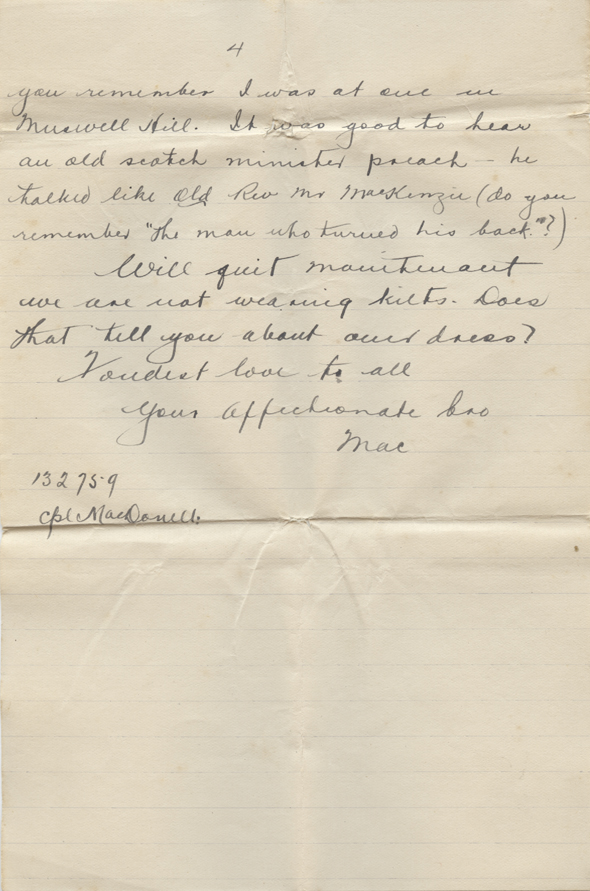 4
you remember I was at one in
Muswell Hill. It was good to hear
an old scotch minister preach – he
talked like old Rev Mr MacKenzie (do you
remember "the man who turned his back"?)
Will quit maintenant
we are not wearing kilts. Does
that tell you about our dress?
Fondest love to all
Your affectionate bro
Mac
132759
Cpl MacDonell.